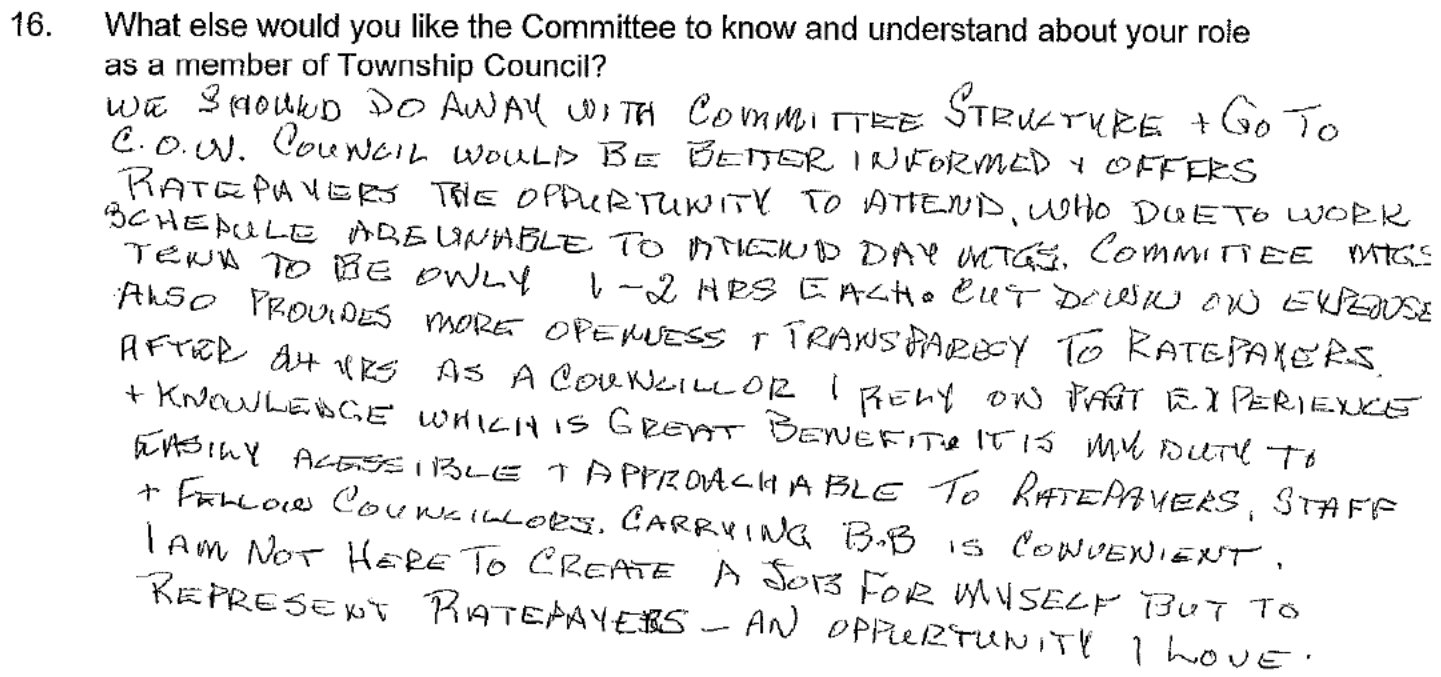 16. What else would you like the Committee to know and understand about your role
as a member of Township Council?
WE SHOULD DO AWAY WITH COMMITTEE STRUCTURE + GO TO
C.O.W. COUNCIL WOULD BE BETTER INFORMED + OFFERS
RATEPAYERS THE OPPURTUNITY TO ATTEND, WHO DUE TO WORK
SCHEDULE ARE UNABLE TO ATTEND DAY MTGS. COMMITTEE MTGS
TEND TO BE ONLY 1-2 HRS EACH. CUT DOWN ON EXPENSE
ALSO PROVIDES MORE OPENNESS + TRANSPARECY TO RATEPAYERS.
AFTER 24 YRS AS A COUNCILLOR I RELY ON PAST EXPERIENCE
+ KNOWLEDGE WHICH IS GREAT BENEFIT. IT IS MY DUTY TO
EASILY ACESSIBLE + APPROACHABLE TO RATEPAYERS, STAFF
+ FELLOW COUNCILLORS. CARRYING B.B IS CONVENIENT.
I AM NOT HERE TO CREATE A JOB FOR MYSELF BUT TO
REPRESENT RATEPAYERS - AN OPPURTUNITY I LOVE.